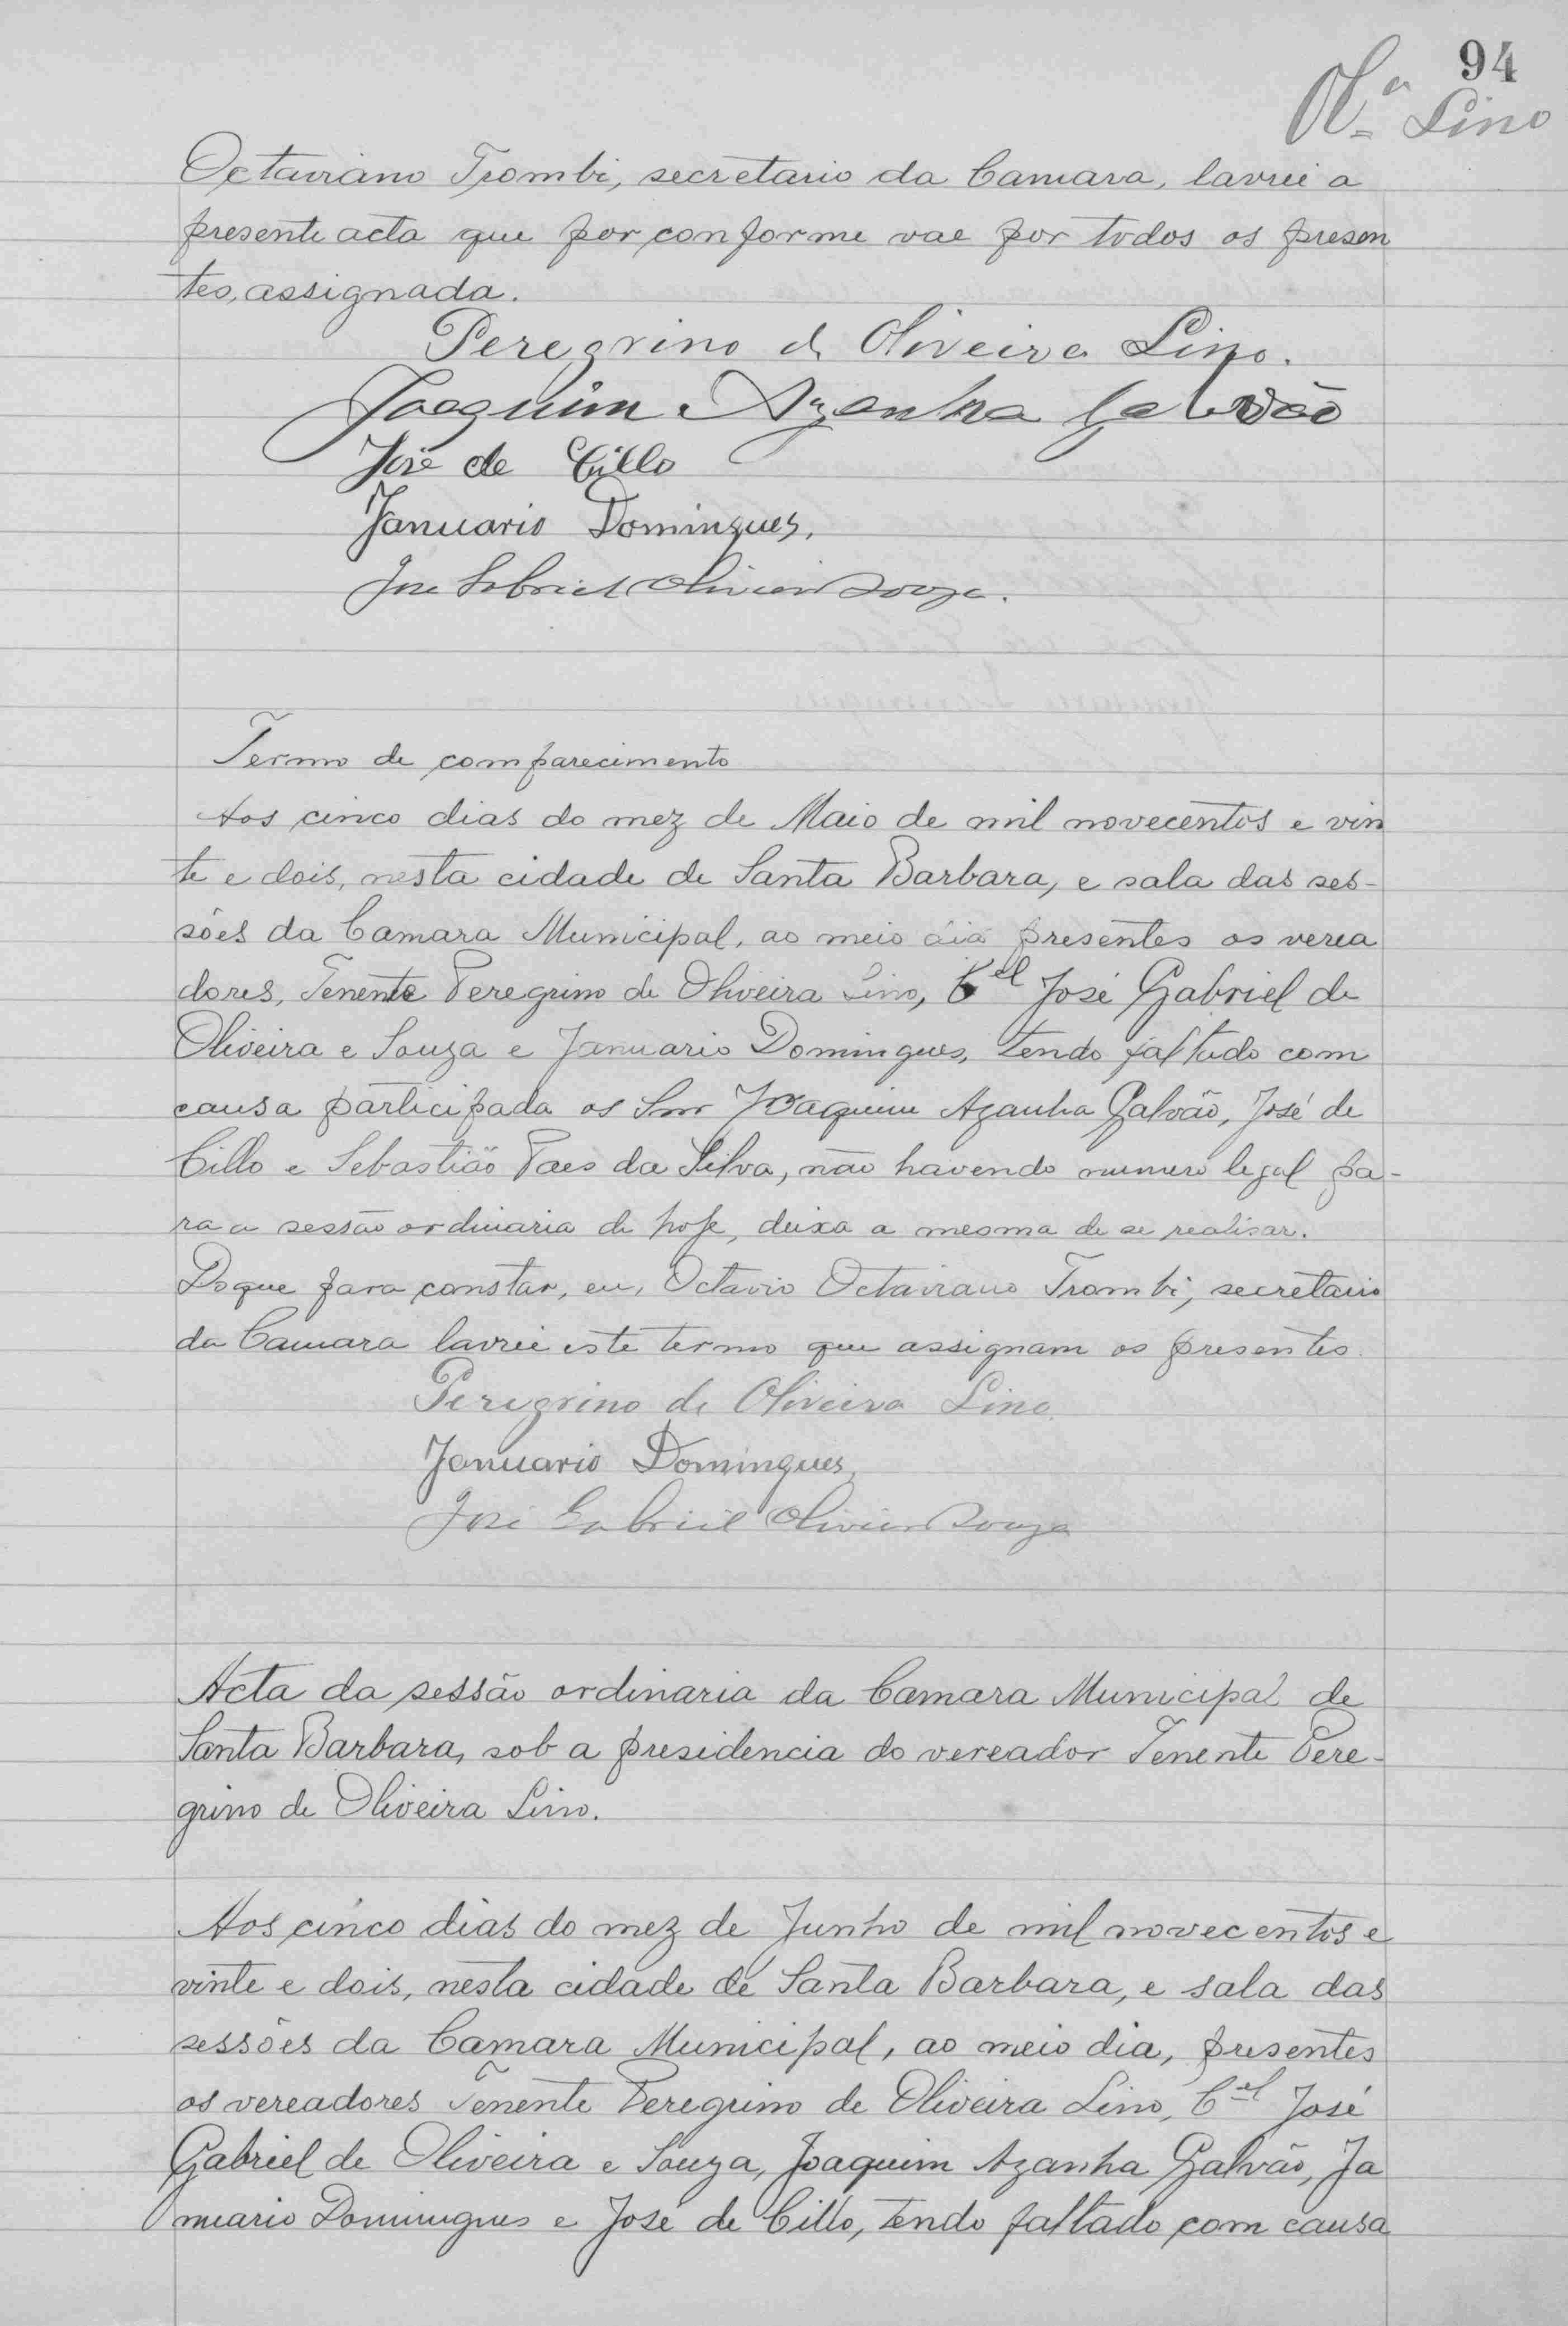 94
Olª Lino
Octaviano Trombi, secretario da Camara, lavrei a
presente acta que por conforme vae por todos os presen
tes, assignada.
Peregrino de Oliveira Lino.
Joaquim Azanha Galvão
José de Cillo
Januario Domingues,
José Gabriel Oliveira Souza.
Termo de comparecimento
Aos cinco dias do mez de Maio de mil novecentos e vin
te e dois, nesta cidade de Santa Barbara, e sala das ses-
sões da Camara Municipal, ao meio dia presentes os verea
dores, Tenente Peregrino de Oliveira Lino, Cel José Gabriel de
Oliveira e Souza e Januario Domingues, tendo faltado com
causa participada os Snr Joaquim Azanha Galvão, José de
Cillo e Sebastião Paes da Silva, não havendo numero legal pa-
ra a sessão ordinaria de hoje, deixa a mesma de se realisar.
Do que para constar, eu, Octavio Octaviano Trombi, secretario
da Camara lavrei este termo que assignam os presentes.
Peregrino de Oliveira Lino.
Januario Domingues,
José Gabriel Oliveira Souza
Acta da sessão ordinaria da Camara Municipal de
Santa Barbara, sob a presidencia do vereador Tenente Pere-
grino de Oliveira Lino.
Aos cinco dias do mez de Junho de mil novecentos e
vinte e dois, nesta cidade de Santa Barbara, e sala das
sessões da Camara Municipal, ao meio dia, presentes
os vereadores Tenente Peregrino de Oliveira Lino, Cel José
Gabriel de Oliveira e Souza, Joaquim Azanha Galvão, Ja
nuario Domingues e José de Cillo, tendo faltado com causa